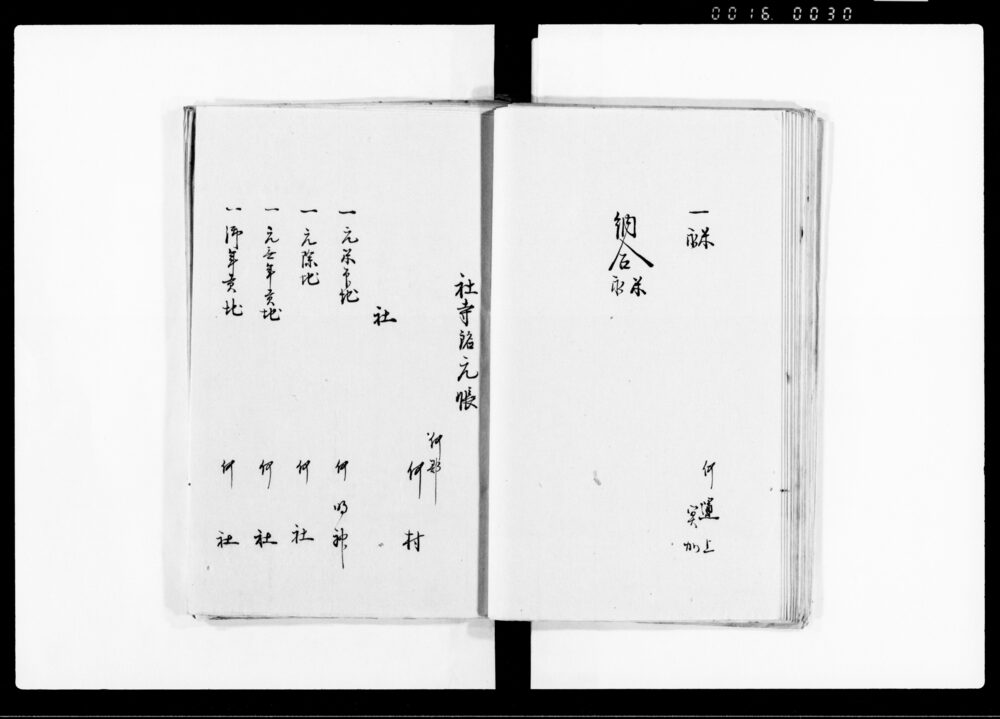 0016. 0030
一 永米
何 運上
冥加
納合 米
永
社寺銘元帳
何郡
何村
社
一 元朱印地 何明神
一 元除地 何社
一 元無年貢地 何社
一 御年貢地 何社